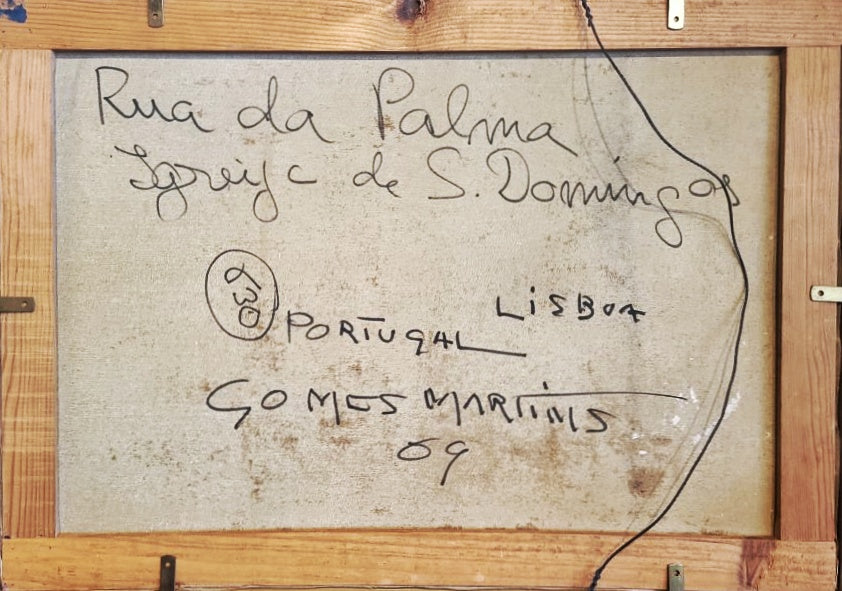 Rua da Palma
Igreja de S. Domingos
LiSBOA
PORTUGAL
GOMES MARTiNS
69